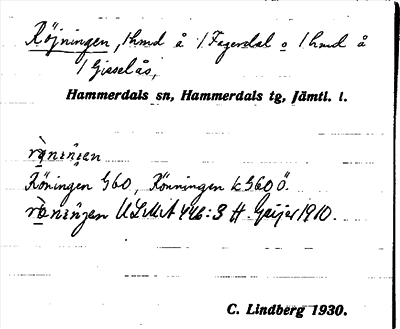 Röjningen, 1 hmd å 1 Fagerdal o 1 hmd å
1 Gisselås,
Hammerdals sn, Hammerdals tg, Jämtl. l.
Röningen G60, Rönningen k G60 Ö.
ULMA 446:3 H. Geijer 1910.
C. Lindberg 1930.